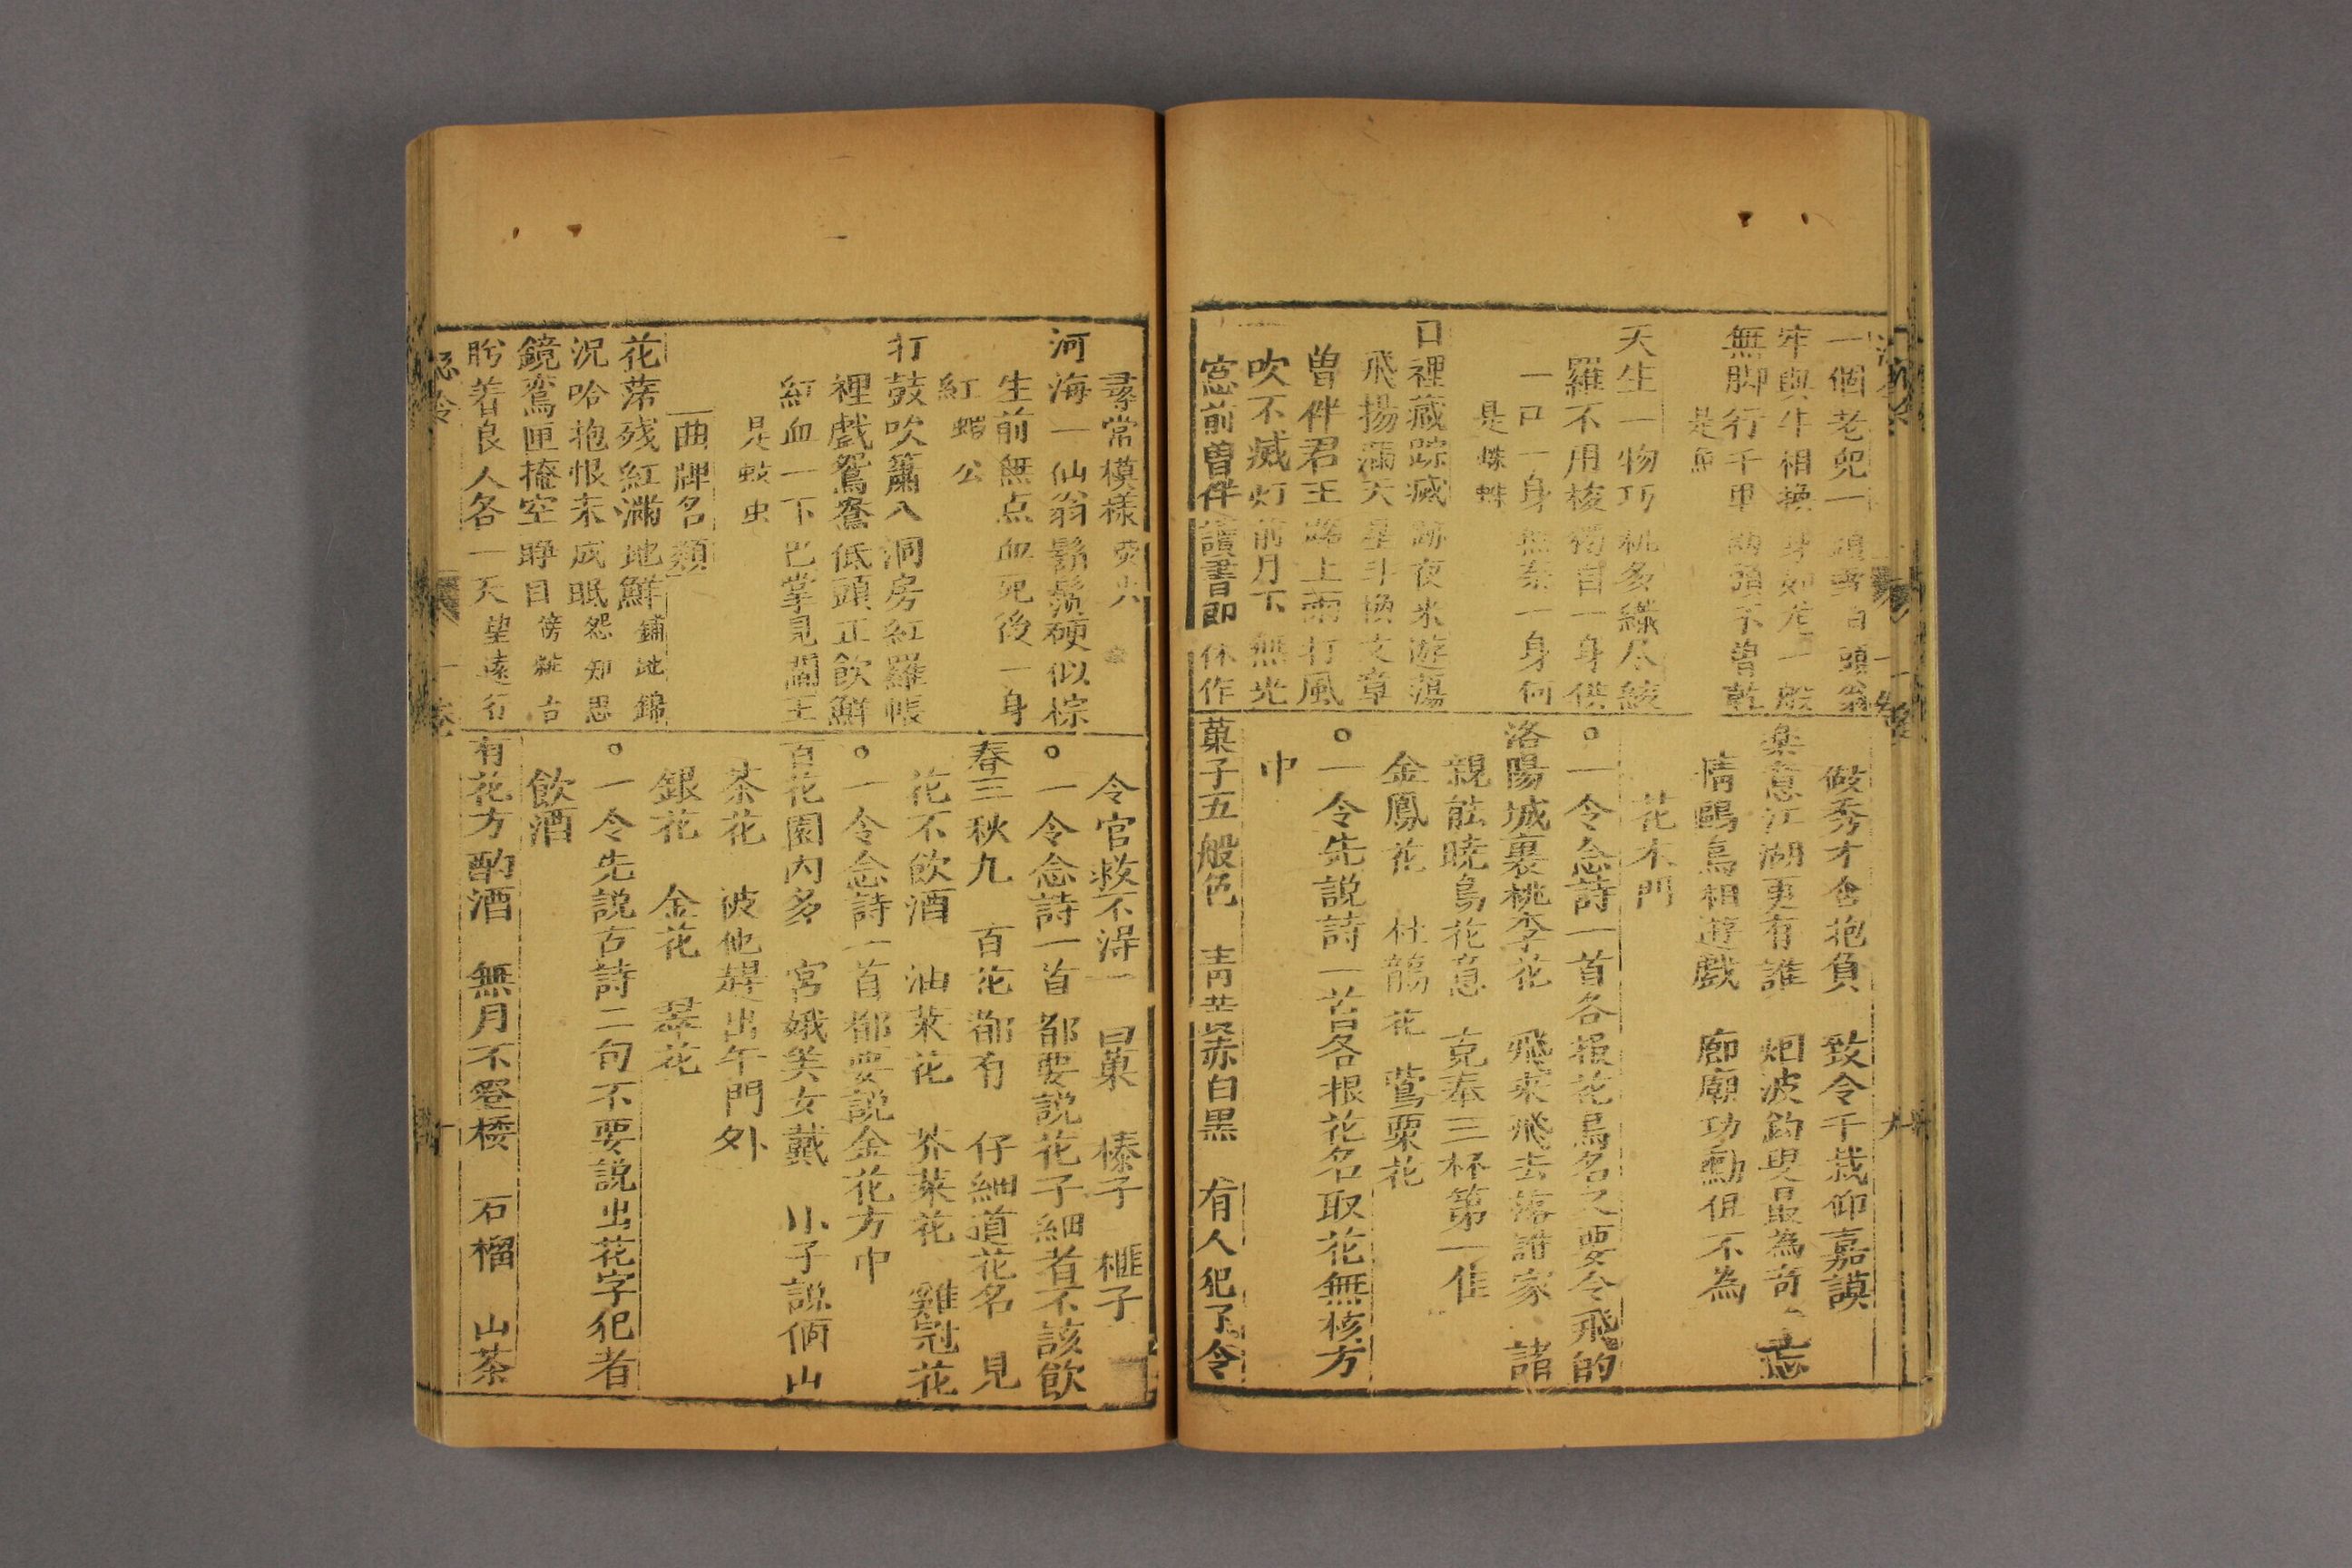 一個老兒一頭雪白頭翁
牢與牛相換身如龙一般
無脚行千里兩頭不曽乾
是魚
天生一物巧机多織尽綾
羅不用梭獨自一身供
一口一身無奈一身何
是蛛蛛
口裡藏踪滅跡夜来遊蕩
飛揚滿天星斗煥文章
曽伴君王露上雨打風
吹不滅灯前月下無光
窓前曽伴讀書郎休作
做秀才舍抱負 致令千載仰嘉謨
楽意江湖更有誰 烟波釣叟最為奇 忘
情鷗鳥相遊戲 廊廟功勳但不為
花木門
○一令念詩一首各根花鳥名又要令飛的
洛陽城裏桃李花 飛来飛去落誰家 諸
親能曉鳥花意 克奉三杯第一佳
金鳳花 杜鵑花 鶯粟花
○一令先説詩一首各根花名取花無核方
中
菓子五般色 青黄赤白黒 有人犯了令
尋常模様 熒火
河海一仙翁鬍鬚硬似棕
生前無点血死後一身
紅 蝦公
打鼓吹簫入洞房紅羅帳
裡戲鴛鴦低頭正飲鮮
紅血一下巴掌見閻王
是蚊虫
曲牌名類
花落残紅滿地鮮 鋪地錦
況哈抱恨未成眠 怨知思
鏡鸞匣掩空睁目 傍粧台
盼着良人各一天 望遠行
令官救不得一 曰菓 榛子 榧子
○一令念詩一首都要説花子細者不該飲
春三秋九 百花都有 仔細道花名 見
花不飲酒 油菜花 芥菜花 雞冠花
○一令念詩一首都要説金花方中
百花園内多 宮娥美女戴 小子説個山
茶花 彼他趕出午門外
銀花 金花 翠花
○一令先説古詩二句不要説出花字犯者
飲酒
有花方酌酒 無月不登楼 石榴 山茶